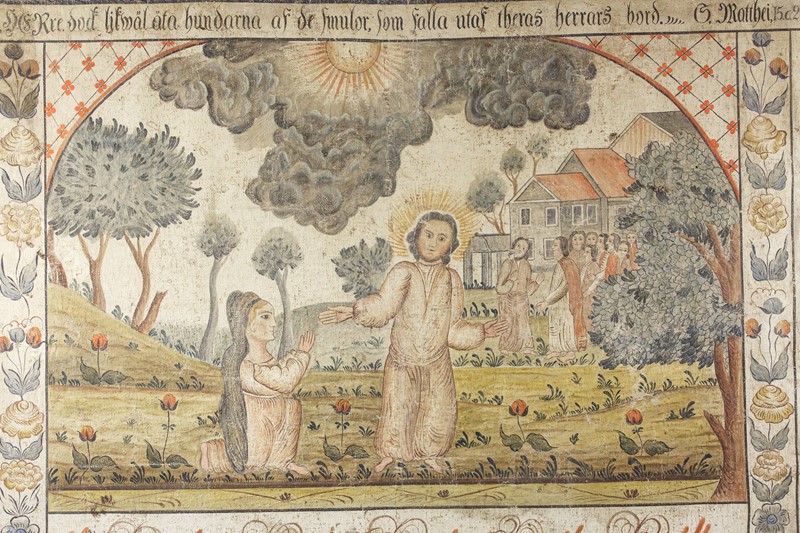 HERre dock likwäl äta hundarna af de smulor, som falla utaf theras herrars bord. S. Matthei, 15. c. 2